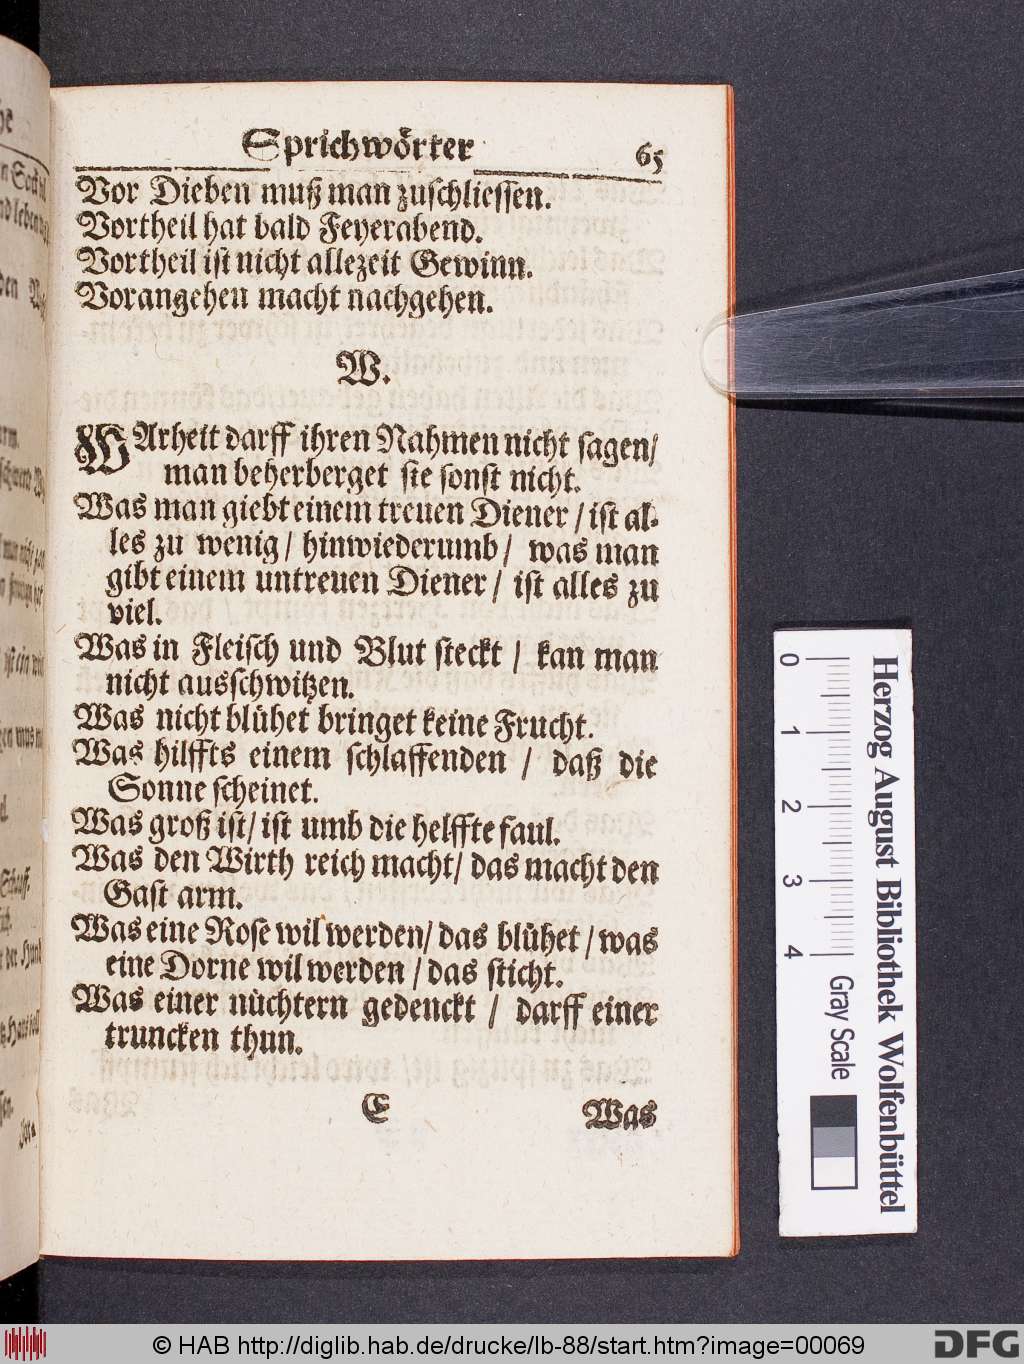 Sprichwörter 65
Vor Dieben muß man zuschliessen.
Vortheil hat bald Feyerabend.
Vortheil ist nicht allezeit Gewinn.
Vorangehen macht nachgehen.
W.
WArheit darff ihren Nahmen nicht sagen/
man beherberget sie sonst nicht.
Was man giebt einem treuen Diener / ist al-
les zu wenig / hinwiederumb / was man
gibt einem untreuen Diener / ist alles zu
viel.
Was in Fleisch und Blut steckt / kan man
nicht ausschwitzen.
Was nicht blühet bringet keine Frucht.
Was hilffts einem schlaffenden / daß die
Sonne scheinet.
Was groß ist/ ist umb die helffte faul.
Was den Wirth reich macht/ das macht den
Gast arm.
Was eine Rose wil werden/ das blühet / was
eine Dorne wil werden / das sticht.
Was einer nüchtern gedenckt / darff einer
truncken thun.
E Was
0 1 2 3 4 Gray Scale
Herzog August Bibliothek Wolfenbüttel
© HAB http://diglib.hab.de/drucke/lb-88/start.htm?image=00069
DFG